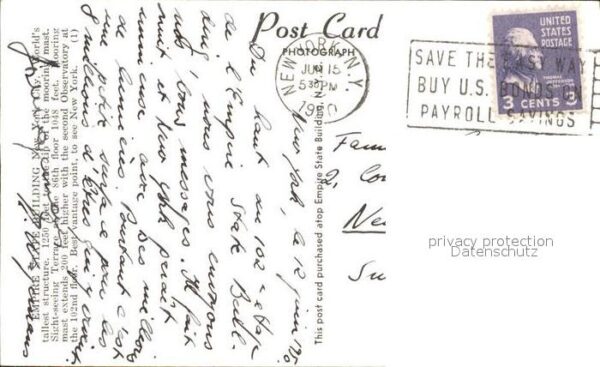 Post Card
PHOTOGRAPH
NEW YORK, N.Y.
JUN 15
5 30 PM
1950
UNITED
STATES
POSTAGE
THOMAS
JEFFERSON
3 CENTS 3
SAVE THE EASY WAY
BUY U.S. BONDS ON
PAYROLL SAVINGS
EMPIRE STATE BUILDING, New York City, World's
tallest structure. 1250 feet to the tip of the mooring mast.
Sight-seeing Terrace on the 86th floor 1048 feet. Mooring
mast extends 200 feet higher with the second Observatory at
the 102nd floor. Best vantage point, to see New York. (1)
This post card purchased atop Empire State Building, N.
New York, le 12 juin 1950
Du haut du 102e étage
de l'Empire State Buil-
ding, nous vous envoyons
nos bons messages. Il fait
nuit et New York paraît
immense, avec ses millions
de lumières. Pourtant c'est
une petite surface pour les
8 millions d'êtres qui y vivent.
Fam
2, Co
Ne
Su
privacy protection
Datenschutz